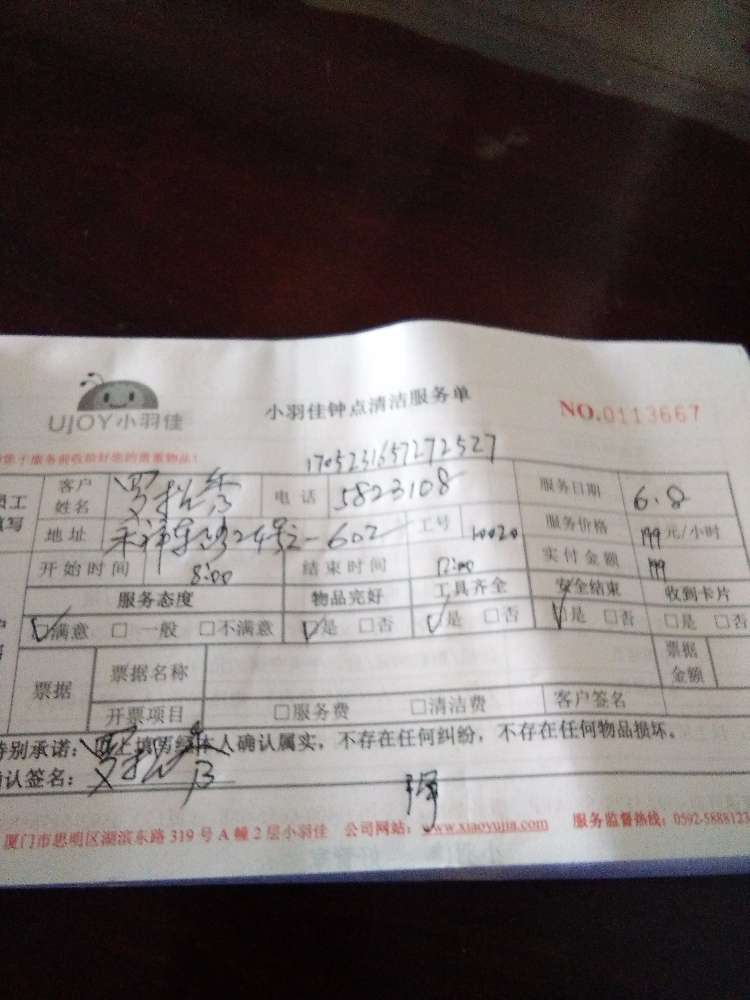 UJOY小羽佳 小羽佳钟点清洁服务单 NO.0113667
服务前收拾好您的贵重物品！
1705231657272527
客户姓名 电话 5823108 服务日期 6.8
填写 地址 602 工号 10020 服务价格 199 元/小时
开始时间 8:00 结束时间 12:00 实付金额 199
服务态度 物品完好 工具齐全 安全结束 收到卡片
满意 □ 一般 □不满意 是 □否 是 □否 是 □否 □是 □否
票据 票据名称 票据金额
开票项目 □服务费 □清洁费 客户签名
特别承诺： 本人确认属实，不存在任何纠纷，不存在任何物品损坏。
确认签名：
厦门市思明区湖滨东路 319 号 A 幢 2 层小羽佳 公司网站：www.xiaoyujia.com 服务监督热线：0592-5888123